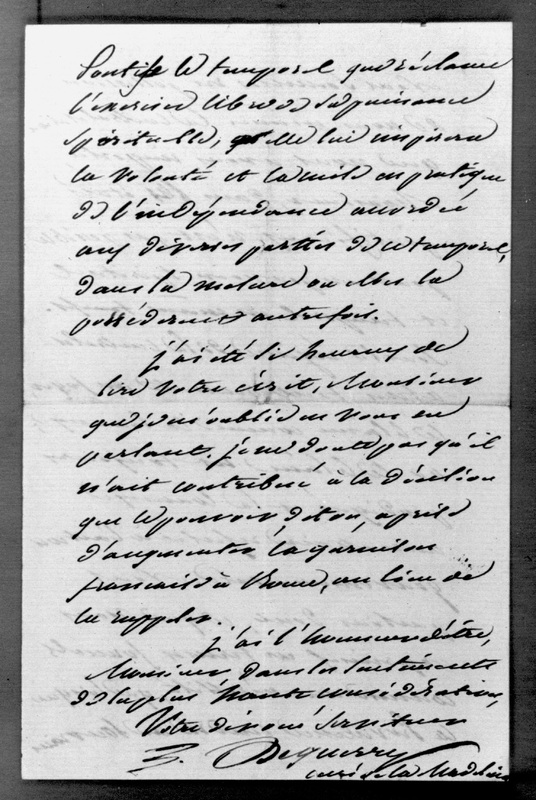 Pontife le temporel que réclame
l'exercice libre de sa puissance
spirituelle, elle lui inspirera
la volonté et la mise en pratique
de l'indépendance accordée
aux diverses parties de ce temporel,
dans la mesure où elles la
possédèrent autrefois.
j'ai été si heureux de
lire votre écrit, Monsieur
que je m'oublie en vous en
parlant. je ne doute pas qu'il
n'ait contribué à la décision
que le pouvoir, dit on, a prise
d'augmenter la garnison
française à Rome, au lieu de
la rappeler.
j'ai l'honneur d'être,
Monsieur, dans les sentiments
de la plus haute considération,
Votre dévoué serviteur
Deguerry
curé de la Madeleine